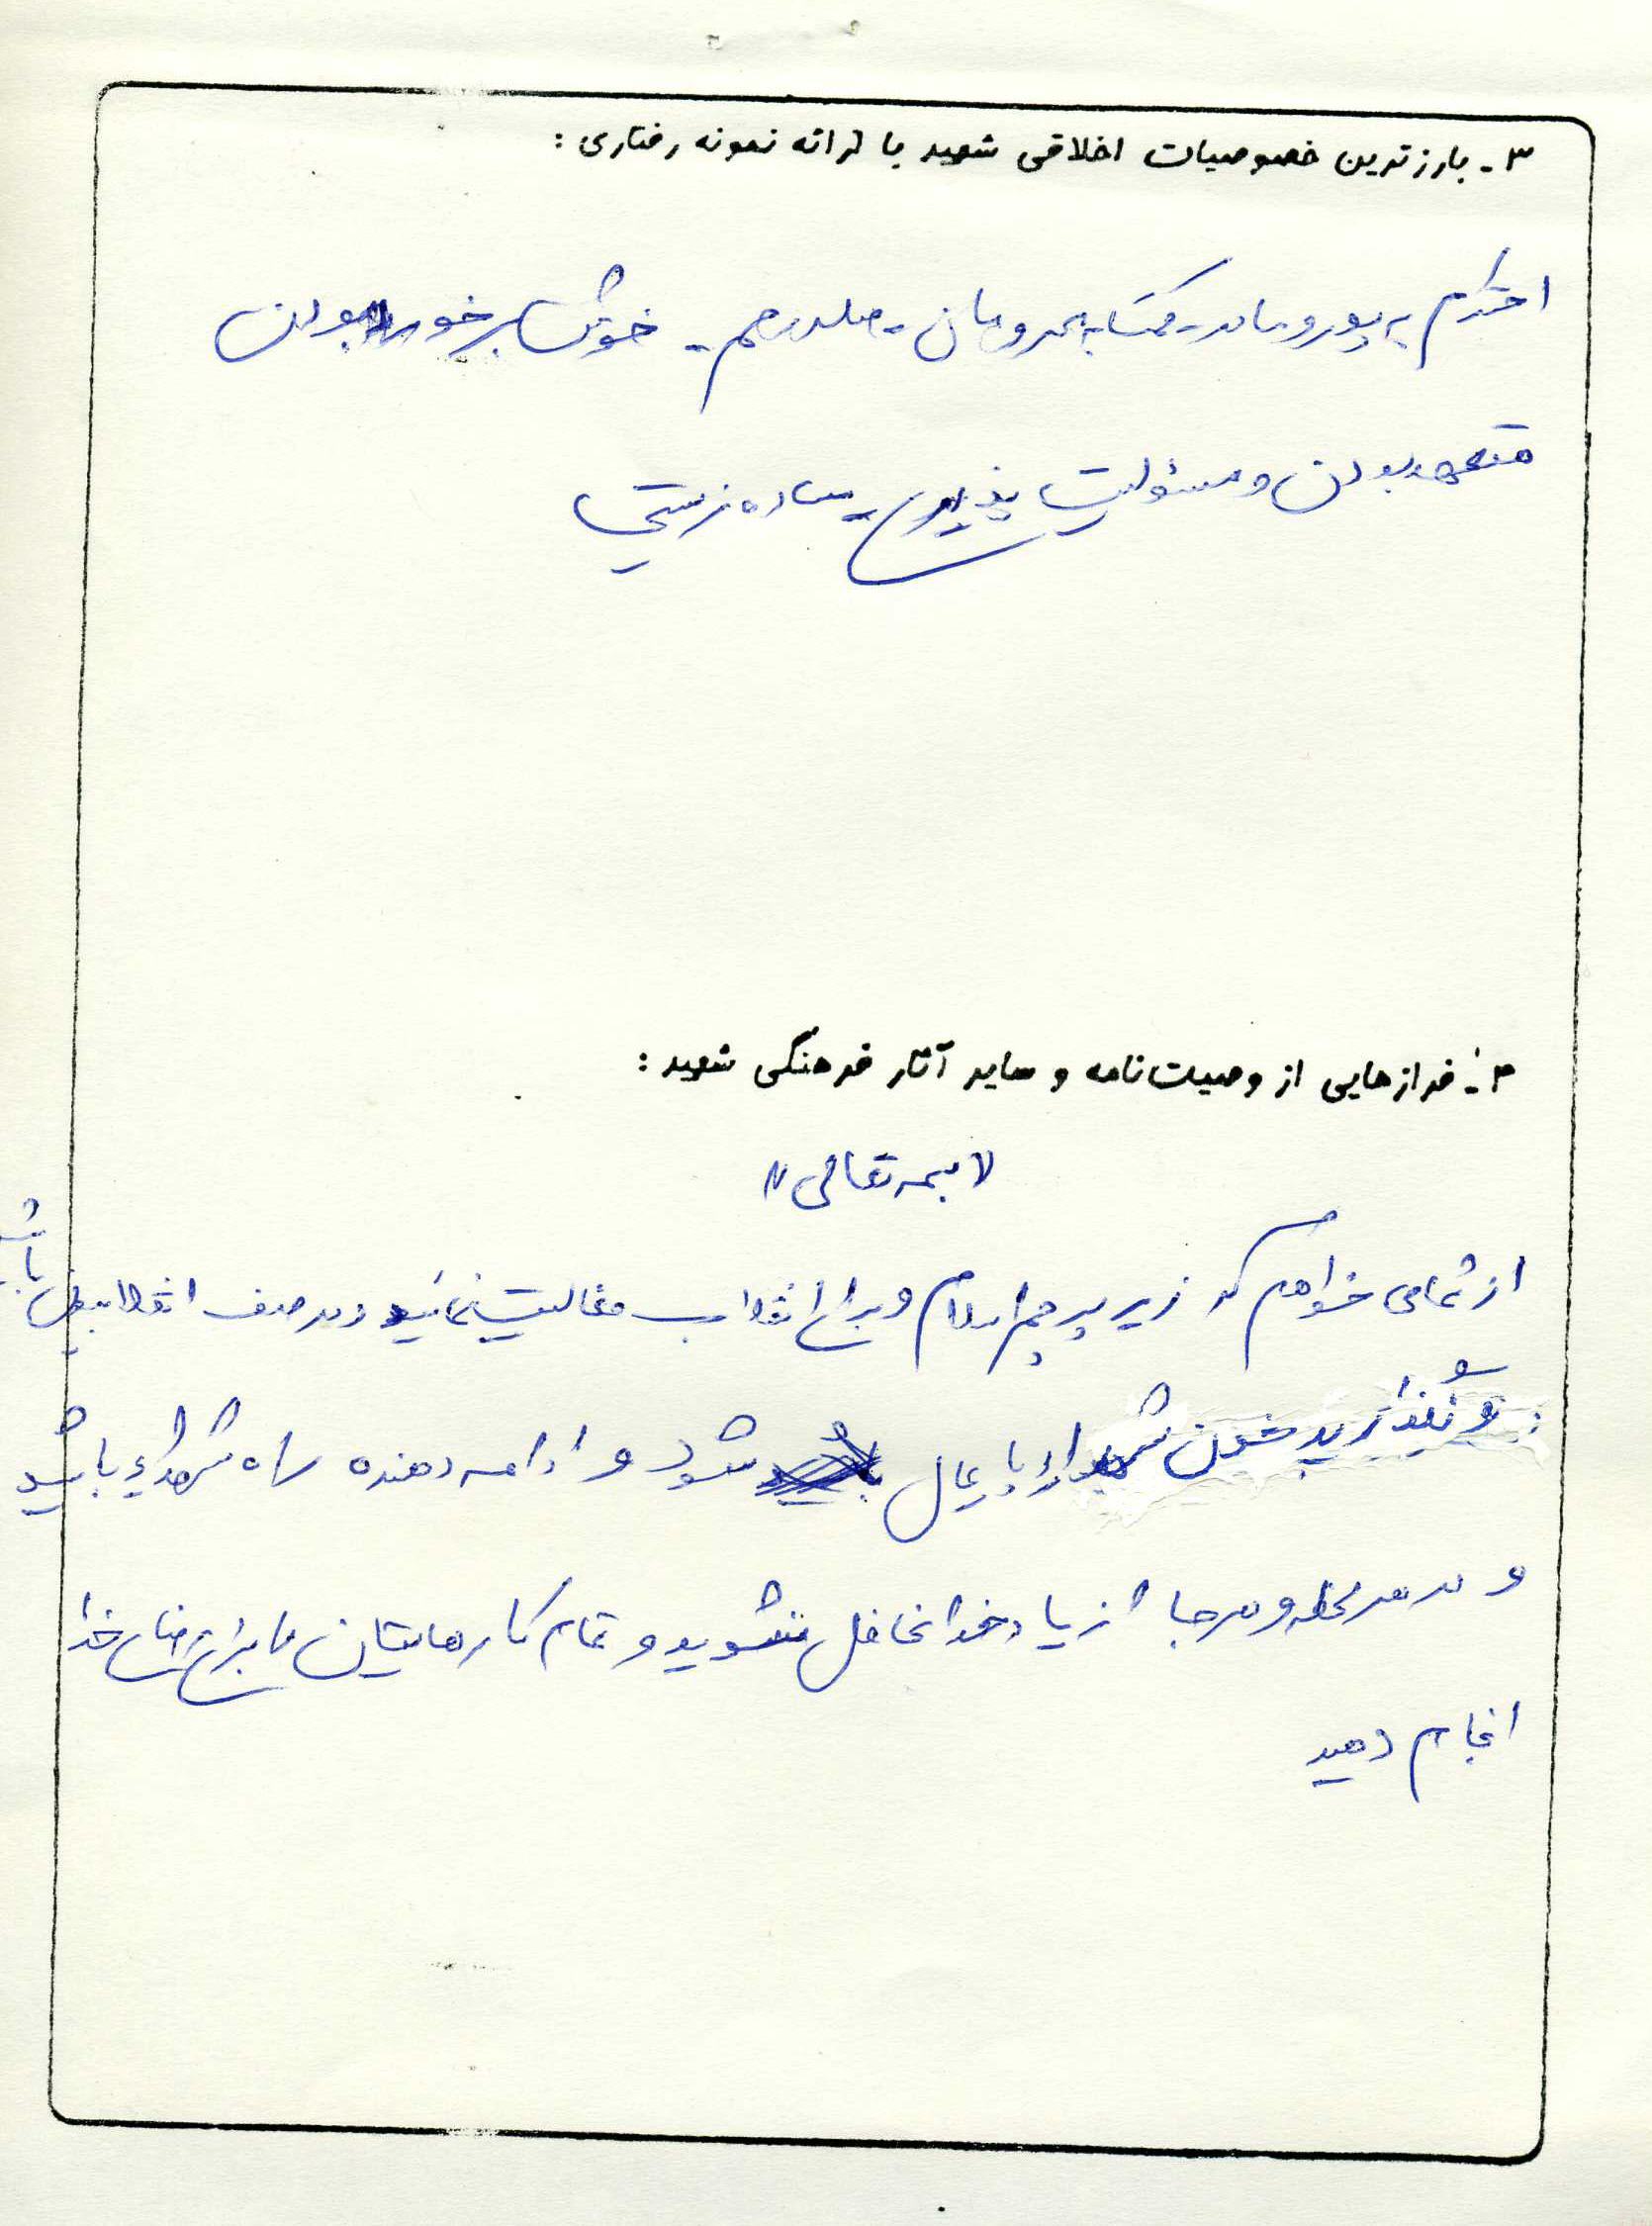 ۳ـ بارزترین خصوصیات اخلاقی شهید با ارائه نمونه رفتاری :
احترام به پدر و مادر ـ کمک به محرومان ـ صله رحم ـ خوش برخورد بودن
متعهد بودن و مسئولیت پذیری ـ ساده زیستی
۴ـ فرازهایی از وصیت‌نامه و سایر آثار فرهنگی شهید :
«بسمه تعالی»
از شما می خواهم که زیر پرچم اسلام و برای انقلاب فعالیت نمائید و در صف انقلابیون باشید
و نگذارید خون شهداء پایمال شود و ادامه دهنده راه شهداء باشید
و در هر لحظه و هر جا از یاد خدا غافل نشوید و تمام کارهایتان را برای رضای خدا
انجام دهید